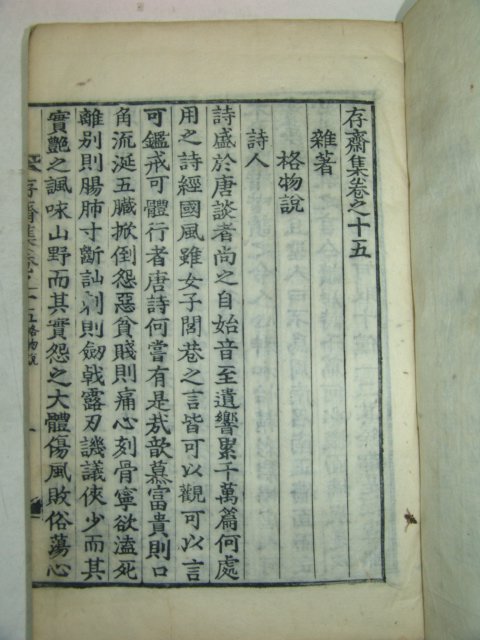 存齋集卷之十五
雜著
格物說
詩人
詩盛於唐談者尚之自始音至遺響累千萬篇何處
用之詩經國風雖女子閭巷之言皆可以觀可以言
可鑑戒可體行者唐詩何嘗有是哉歆慕富貴則口
角流涎五臟掀倒怨惡貧賤則痛心刻骨寧欲溘死
離别則腸肺寸斷訕刺則劒戟露刃譏議俠少而其
實艷之諷味山野而其實怨之大體傷風敗俗蕩心
存齋集卷之十五 格物說